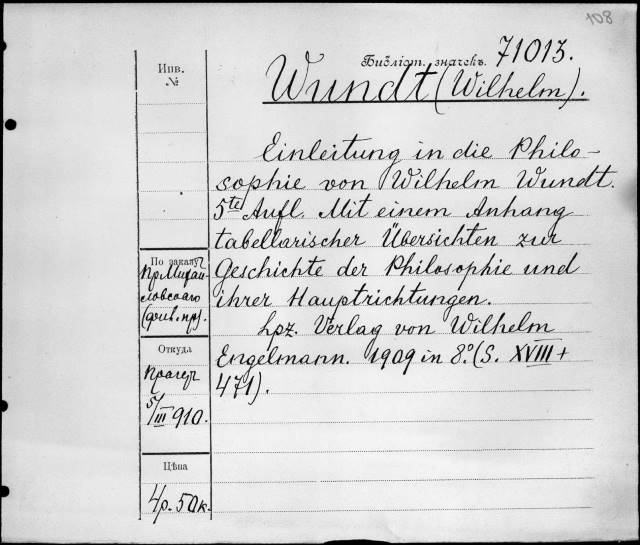 108
Библіот. значекъ. 71013.
Инв.
№
Wundt (Wilhelm).
Einleitung in die Philo-
sophie von Wilhelm Wundt.
5te Aufl. Mit einem Anhang
tabellarischer Übersichten zur
Geschichte der Philosophie und
ihrer Hauptrichtungen.
Lpz. Verlag von Wilhelm
Engelmann. 1909 in 8.° (S. XVIII +
471).
По заказу
Откуда
5/III 910.
Цѣна
4р. 50к.